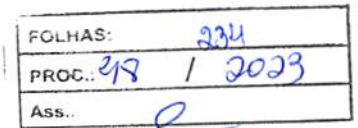 FOLHAS: 234
PROC.: 48 / 2023
Ass..